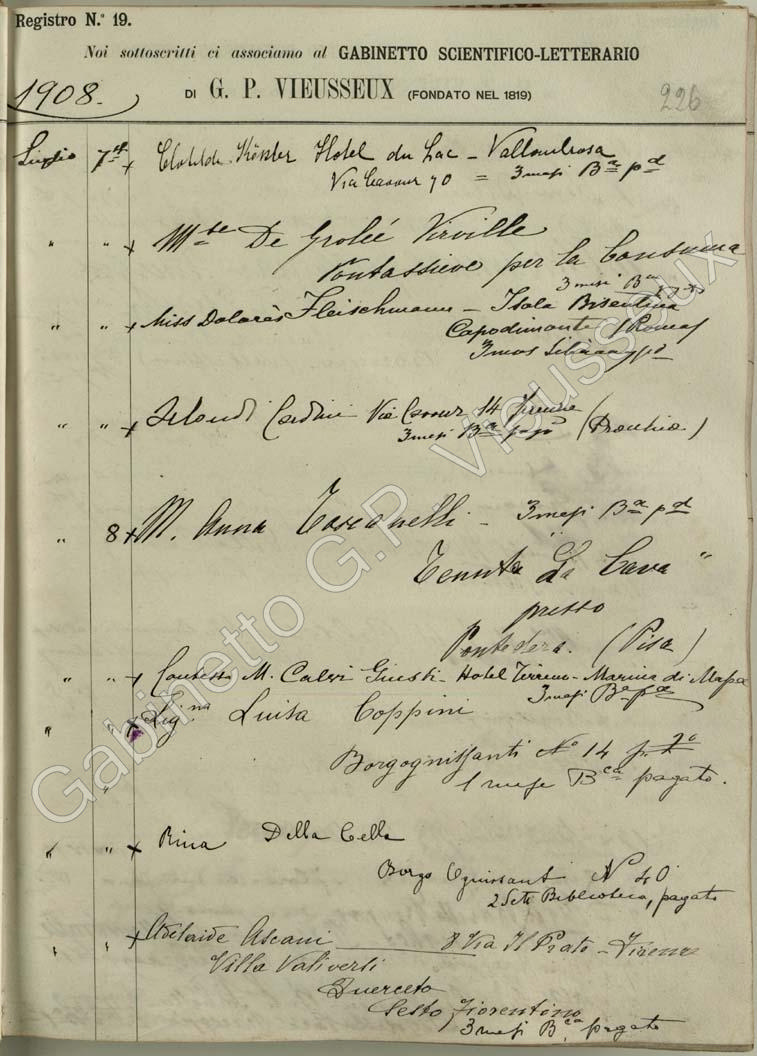 Registro N.° 19.
Noi sottoscritti ci associamo al GABINETTO SCIENTIFICO-LETTERARIO
DI G. P. VIEUSSEUX (FONDATO NEL 1819)
1908.
226
Luglio 7 x Clotilde Hotel du Lac - Vallombrosa
Via Cavour 70 = 3 mesi Ba pd
" " x De Grolée Virville
Pontassieve per la Consuma
3 mesi Ba
" " x Miss Dolorès Fleischmann - Isola Bisentina
Capodimonte (Roma)
3 mos
" " x Via Cavour 14 Firenze
3 mesi Ba pago
" 8 x M. Anna Toscanelli - 3 mesi Ba pd
Tenuta "La Cava"
presso
Pontedera. (Pisa)
" " x Contessa M. Calvi Giusti - Hotel Tirreno - Marina di Massa
3 mesi Ba pd
" " x Sig.na Luisa Coppini
Borgognissanti No 14 p. 2o
" 1 mese Bca pagato.
" " x Rina Della Cella
Borgo Ognissanti N 40
2 Sett Biblioteca, pagato
" " x Adelaide Ascani 8 Via Il Prato - Firenze
Villa Valiversi
Querceto
Sesto Fiorentino
3 mesi Bca pagato
Gabinetto G.P. Vieusseux